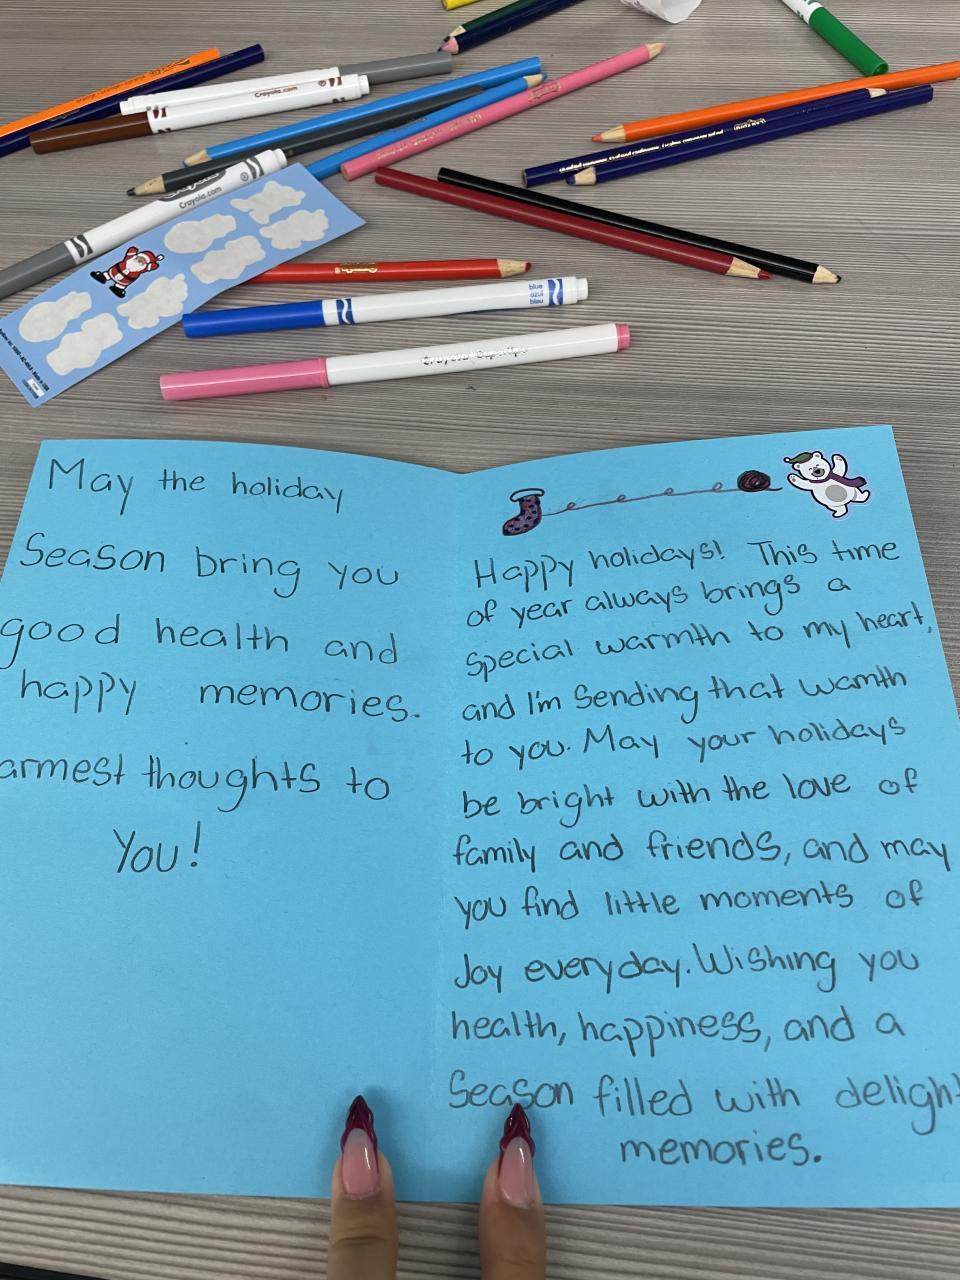 Crayola.com
Crayola.com
blue
azul
bleu
Crayola SuperTips
May the holiday
Season bring you
good health and
happy memories.
armest thoughts to
You!
Happy holidays! This time
of year always brings a
special warmth to my heart,
and I'm Sending that wamth
to you. May your holidays
be bright with the love of
family and friends, and may
you find little moments of
Joy everyday. Wishing you
health, happiness, and a
Season filled with delight
memories.